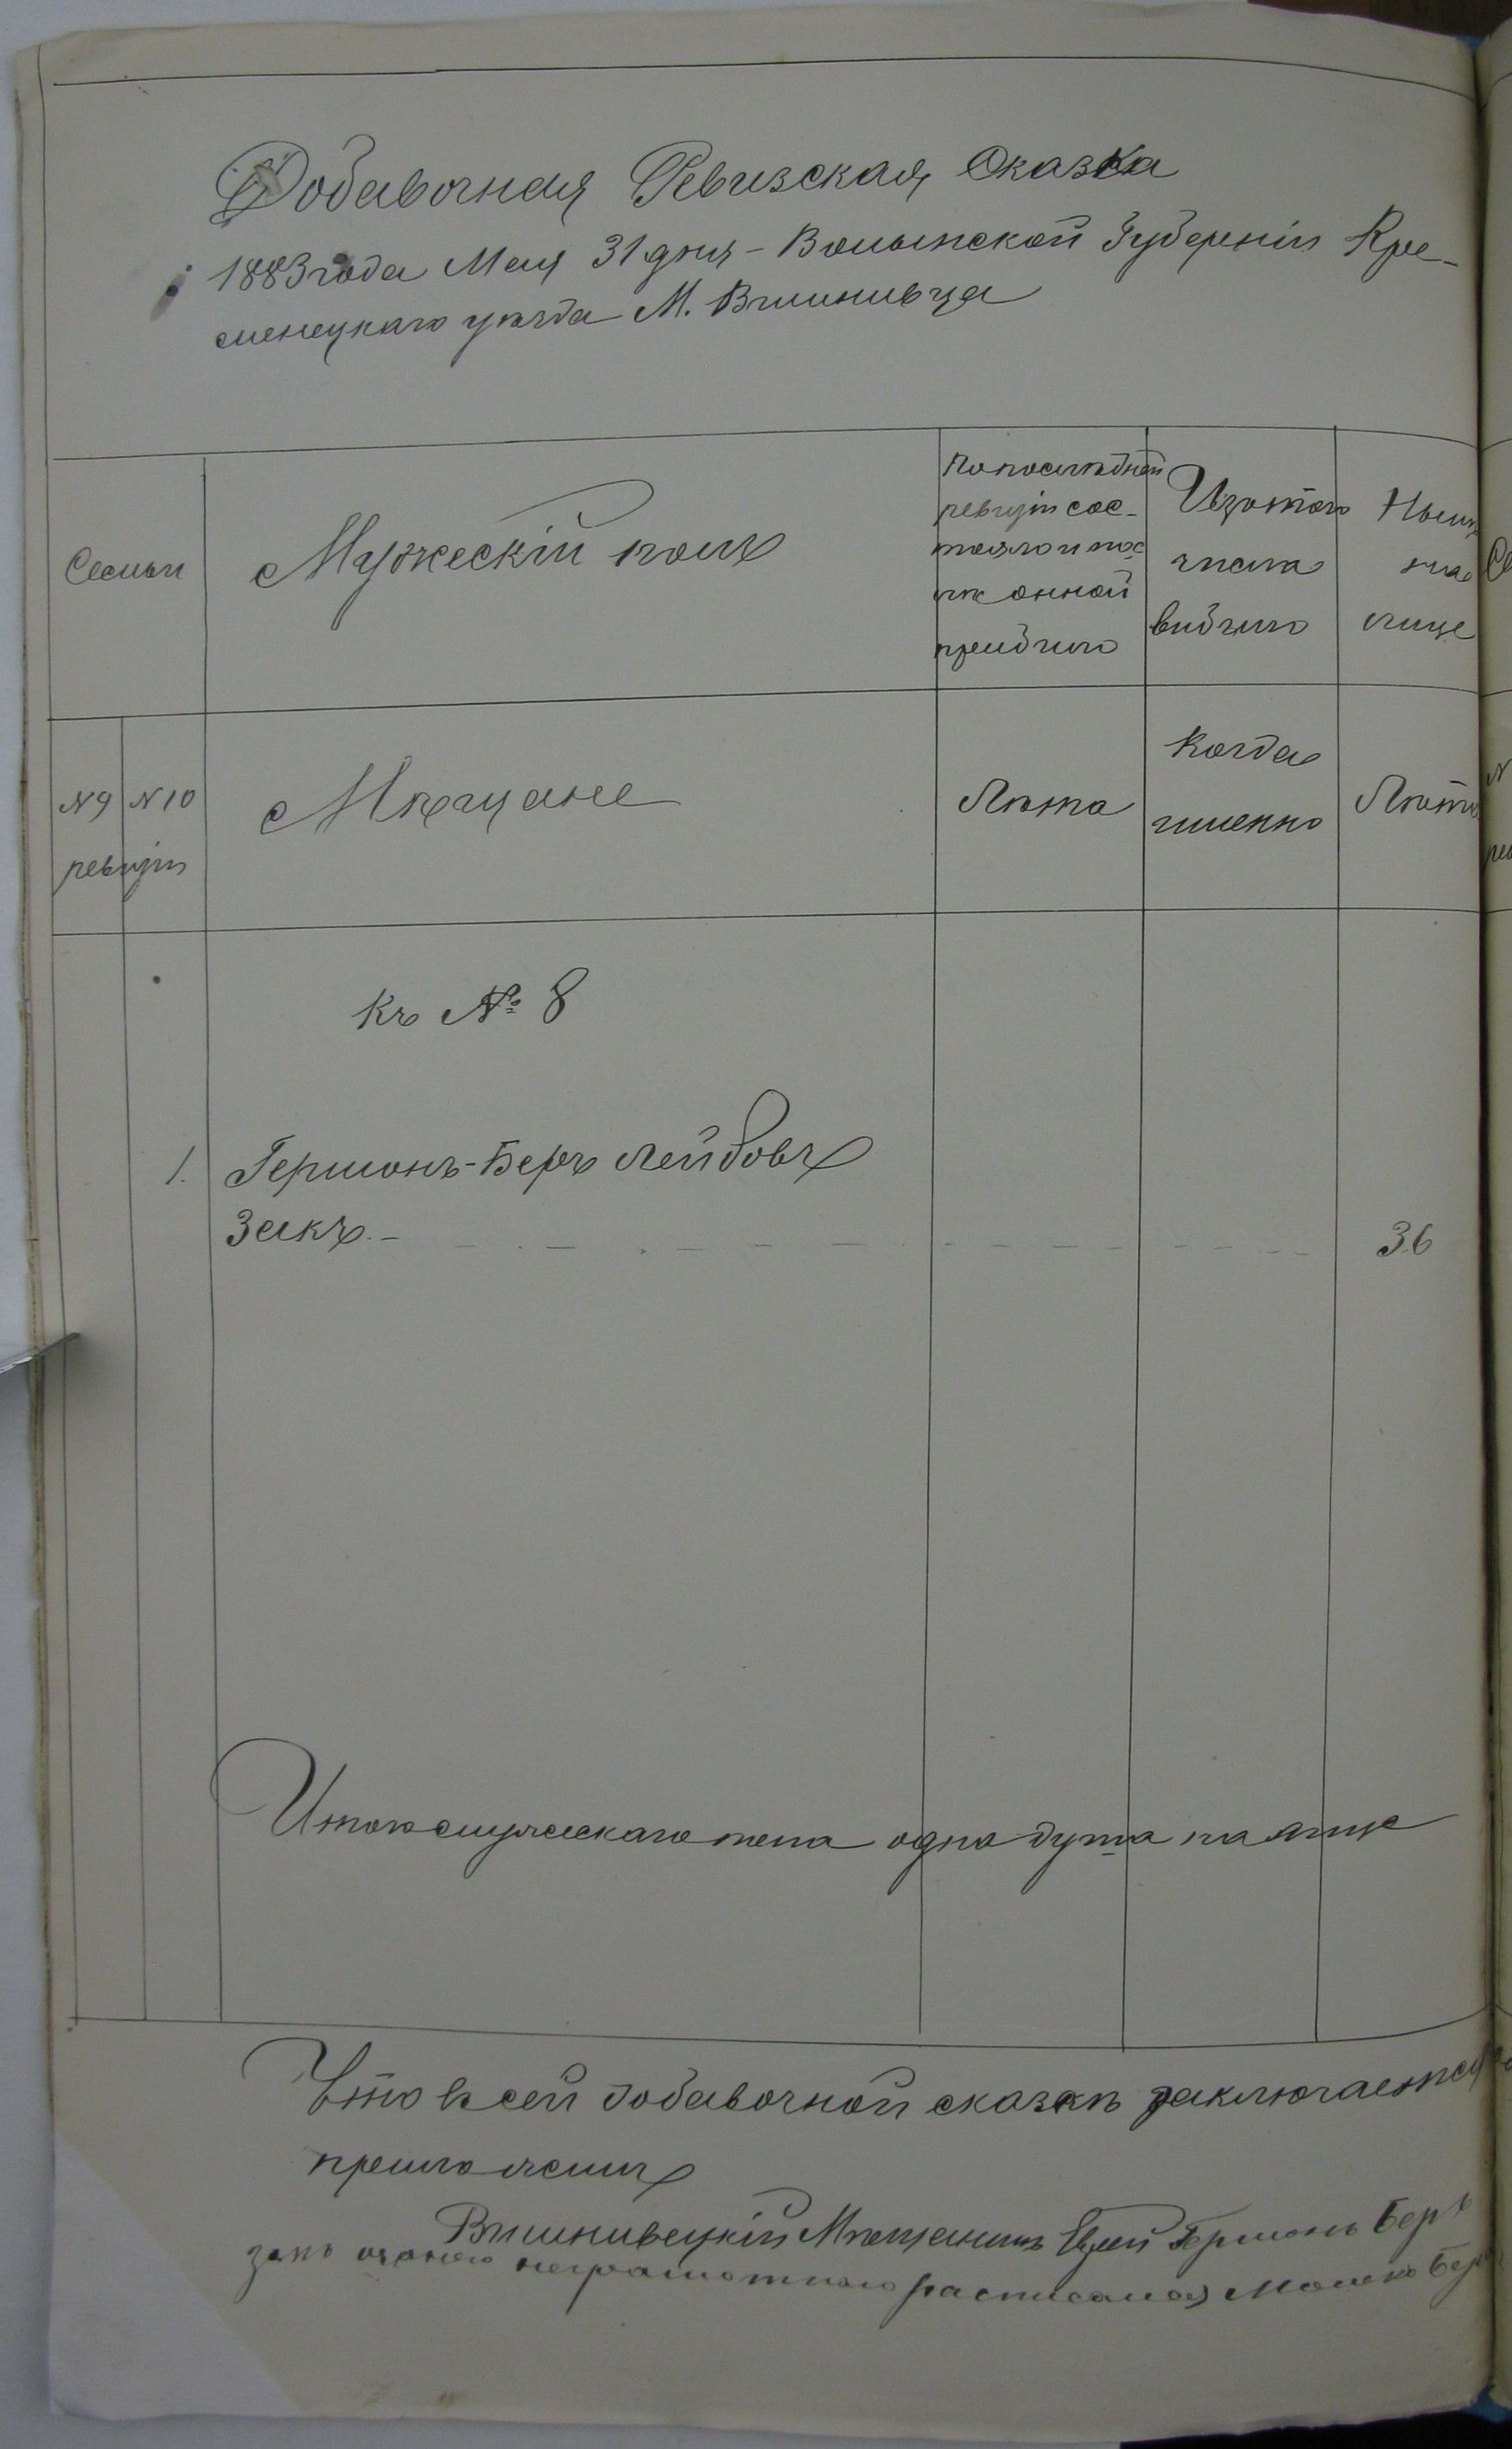 Добавочная Ревизская Сказка
1883 года Мая 31 дня - Волынской Губерніи Кре-
менецкаго уѣзда М. Вишнивца
Семьи
Мужескій полъ
По послѣдней
ревизіи сос-
тояло и пос
лѣ онной
прибыло
Изъ того
числа
выбыло
Нынѣ
на
лице
№ 9 № 10
ревизіи
Мѣщане
Лѣта
Когда
именно
Лѣта
Къ № 8
1. Гершонъ-Беръ Лейбовъ
Закъ. - 36
Итого мужескаго пола одна душа на лице
Что в сей добавочной сказкѣ заключается
Вишнивецкій Мѣщанинъ Еврей Гершонъ Беръ
Закъ неграмотнаго расписался Мошко Бер